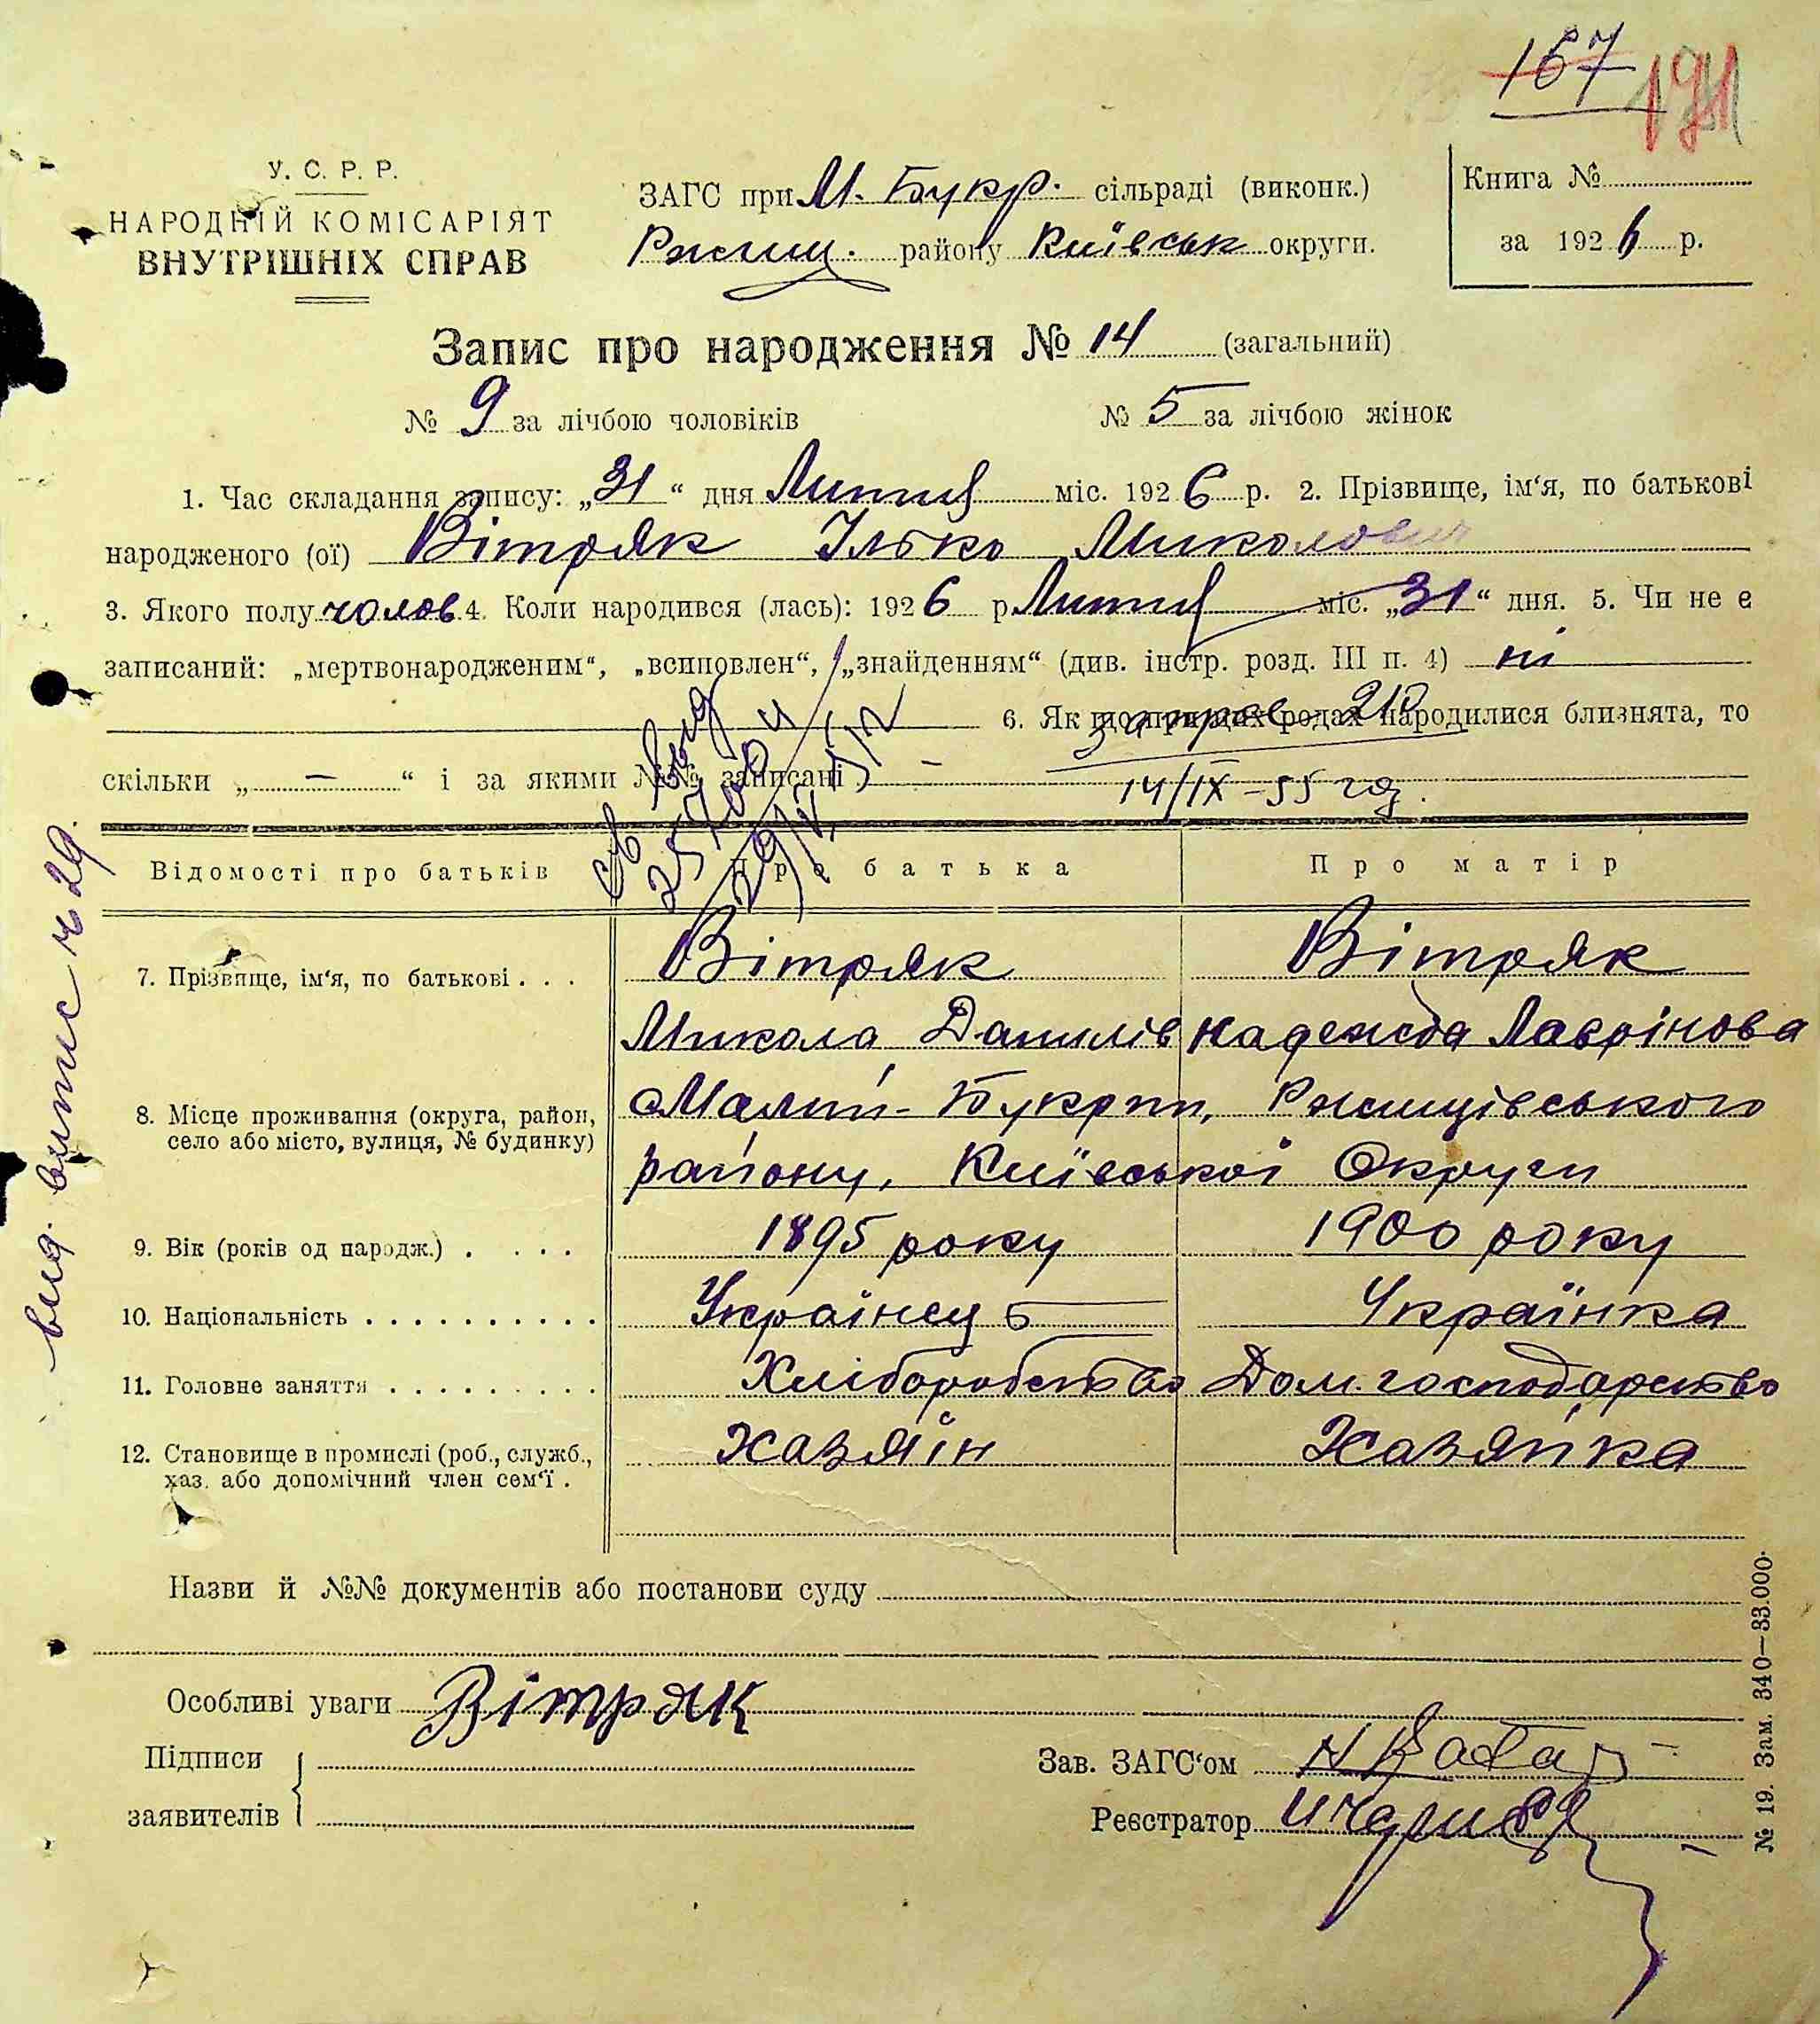 167 191
У. С. Р. Р.
НАРОДНІЙ КОМІСАРІЯТ
ВНУТРІШНІХ СПРАВ
ЗАГС при М. Букр. сільраді (виконк.)
Ржищ. району Київськ округи.
Книга №
за 1926 р.
Запис про народження № 14 (загальний)
№ 9 за лічбою чоловіків № 5 за лічбою жінок
1. Час складання запису: „31“ дня Липця міс. 1926 р. 2. Прізвище, ім‘я, по батькові
народженого (ої) Вітряк Ілько Миколович
3. Якого полу чолов 4. Коли народився (лась): 1926 р. Липця міс. „31“ дня. 5. Чи не е
записаний: „мертвонародженим“, „всиновлен“, „знайденням“ (див. інстр. розд. III п. 4) ні
6. Як що при цих родах народилися близнята, то
скільки „ — “ і за якими №№ записані —
14/IX-55 год.
Відомості про батьків Про батька Про матір
7. Прізвище, ім‘я, по батькові . . . Вітряк Вітряк
Микола Данилів Надежда Лаврінова
8. Місце проживання (округа, район, Малий-Букрин, Ржищівського
село або місто, вулиця, № будинку) району, Київської Округи
9. Вік (років од народж.) . . . . 1895 року 1900 року
10. Національність . . . . . . . . . . Українець Українка
11. Головне заняття . . . . . . . . . Хліборобство Дом. господарство
12. Становище в промислі (роб., служб., хазяїн Хазяйка
хаз. або допомічний член сем‘ї .
Назви й №№ документів або постанови суду
Особливі уваги Вітряк
Підписи
заявителів
Зав. ЗАГС‘ом
Реєстратор
№ 19. Зам. 340—33.000.
вид. випис ч 29.